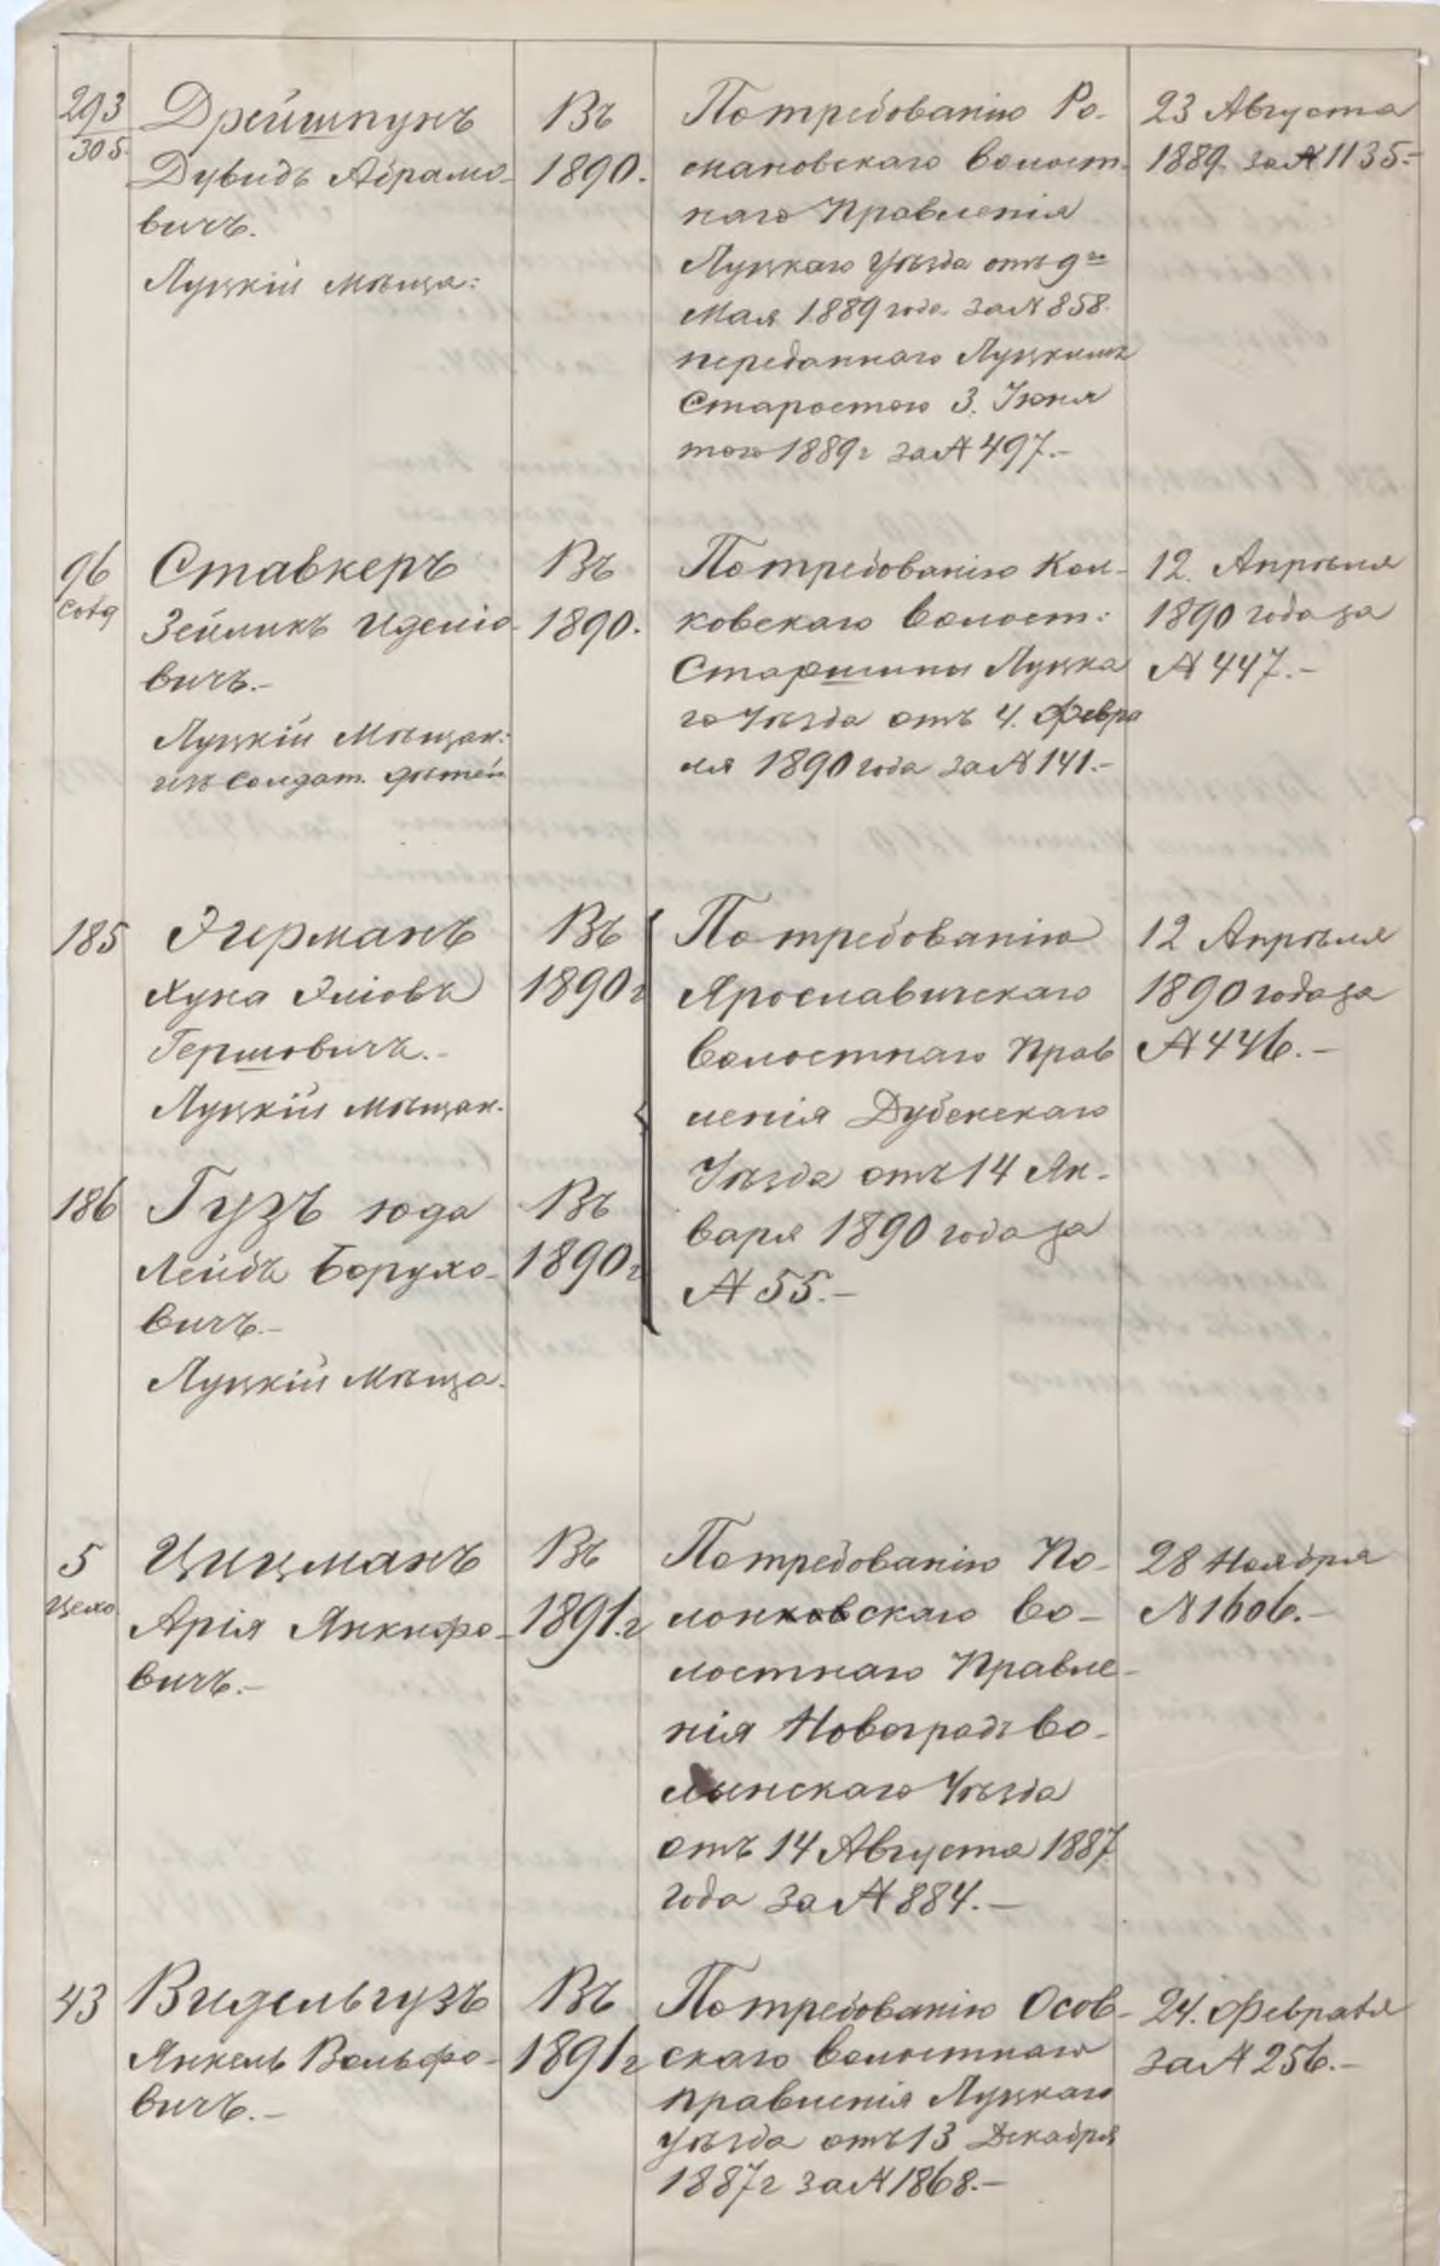 293
305.
Дрейшпунъ
Дувидъ Абрамо-
вичъ.
Луцкій Мѣща:
Въ
1890.
По требованію Ро-
мановскаго Волост-
наго Правленія
Луцкаго Уѣзда отъ 9го
Мая 1889 года за № 858.
переданнаго Луцкимъ
Старостою 3. Іюня
того 1889 г за № 497.-
23 Августа
1889. за № 1135.-
96
Ставкеръ
Зейликъ
вичъ.-
Луцкій Мѣщан:
изъ Солдат. дѣтей
Въ
1890.
По требованію Кол-
ковскаго Волост:
Старшины Луцка
го Уѣзда отъ 4. Февра
ля 1890 года за № 141.-
12. Апрѣля
1890 года за
№ 447.-
185
Эгерманъ
Хуна Эліовъ
Гершовичъ.-
Луцкій Мѣщан.
Въ
1890 г
По требованію
Ярославичскаго
Волостнаго Прав
ленія Дубенскаго
Уѣзда отъ 14 Ян-
варя 1890 года за
№ 55.-
12 Апрѣля
1890 года за
№ 446.-
186
Гузъ Іода
Лейбъ Борухо-
вичъ.-
Луцкій Мѣща.
Въ
1890 г
5
Цехо
Цицманъ
Арія Янкифо-
вичъ.-
Въ
1891. г
По требованію По-
лонковскаго Во-
лостнаго Правле-
нія Новоградъ Во-
лынскаго Уѣзда
отъ 14 Августа 1887
года за № 884.-
28 Ноября
№ 1606.-
43
Видельгузъ
Янкель Вольфо-
вичъ.-
Въ
1891 г
По требованію Осов-
скаго Волостнаго
правленія Луцкаго
уѣзда отъ 13 Декабря
1887 г за № 1868.-
24. Февраля
за № 256.-